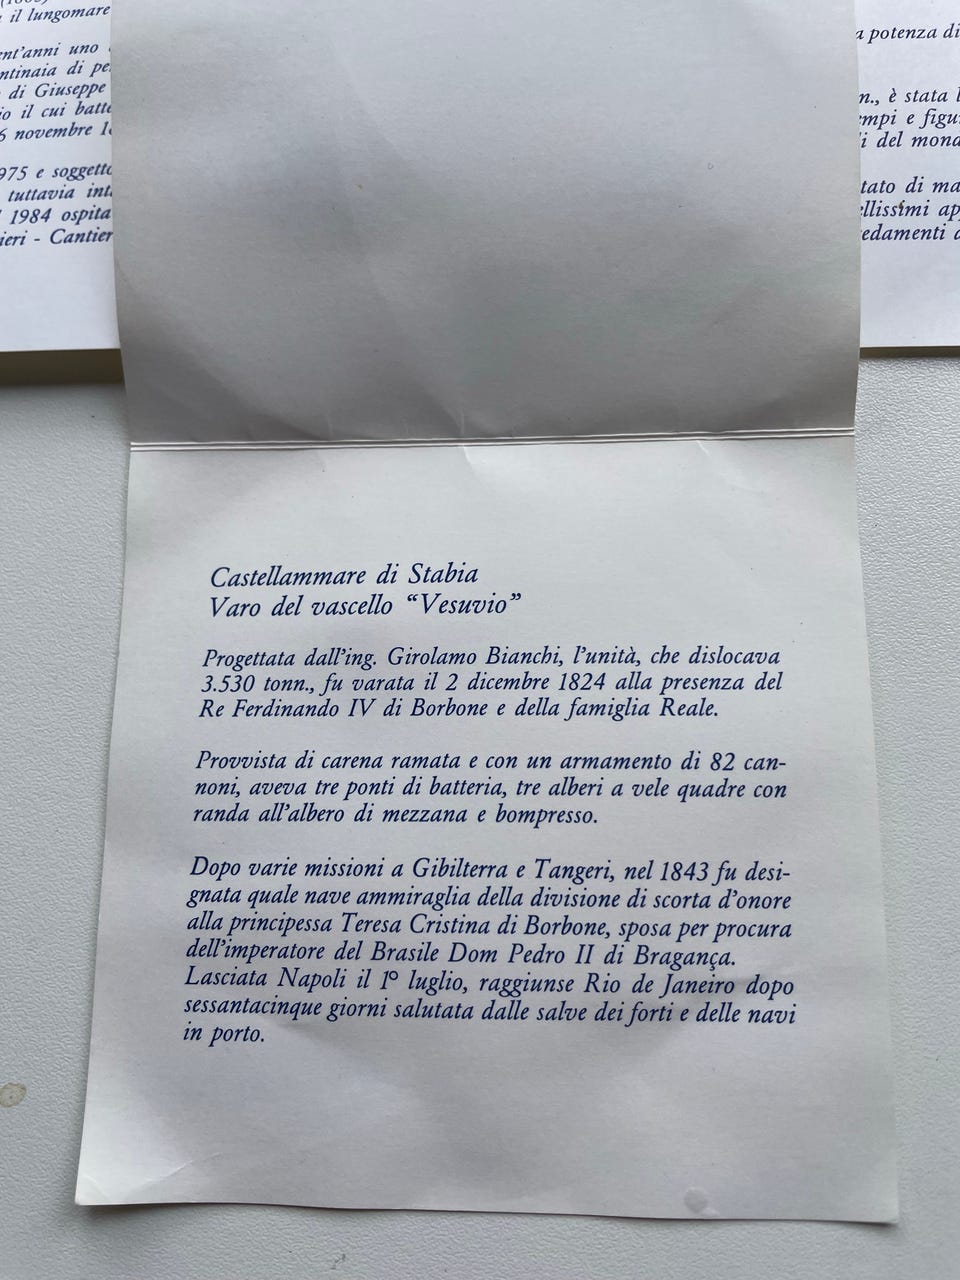 il lungomare
ent'anni uno
ntinaia di pe
di Giuseppe
io il cui batte
6 novembre 1
975 e soggetto
tuttavia int
1984 ospita
ieri - Cantier
a potenza di
n., è stata l
empi e figu
i del mond
tato di ma
ellissimi ap
edamenti
Castellammare di Stabia
Varo del vascello “Vesuvio”
Progettata dall'ing. Girolamo Bianchi, l'unità, che dislocava
3.530 tonn., fu varata il 2 dicembre 1824 alla presenza del
Re Ferdinando IV di Borbone e della famiglia Reale.
Provvista di carena ramata e con un armamento di 82 can-
noni, aveva tre ponti di batteria, tre alberi a vele quadre con
randa all'albero di mezzana e bompresso.
Dopo varie missioni a Gibilterra e Tangeri, nel 1843 fu desi-
gnata quale nave ammiraglia della divisione di scorta d'onore
alla principessa Teresa Cristina di Borbone, sposa per procura
dell'imperatore del Brasile Dom Pedro II di Bragança.
Lasciata Napoli il 1º luglio, raggiunse Rio de Janeiro dopo
sessantacinque giorni salutata dalle salve dei forti e delle navi
in porto.